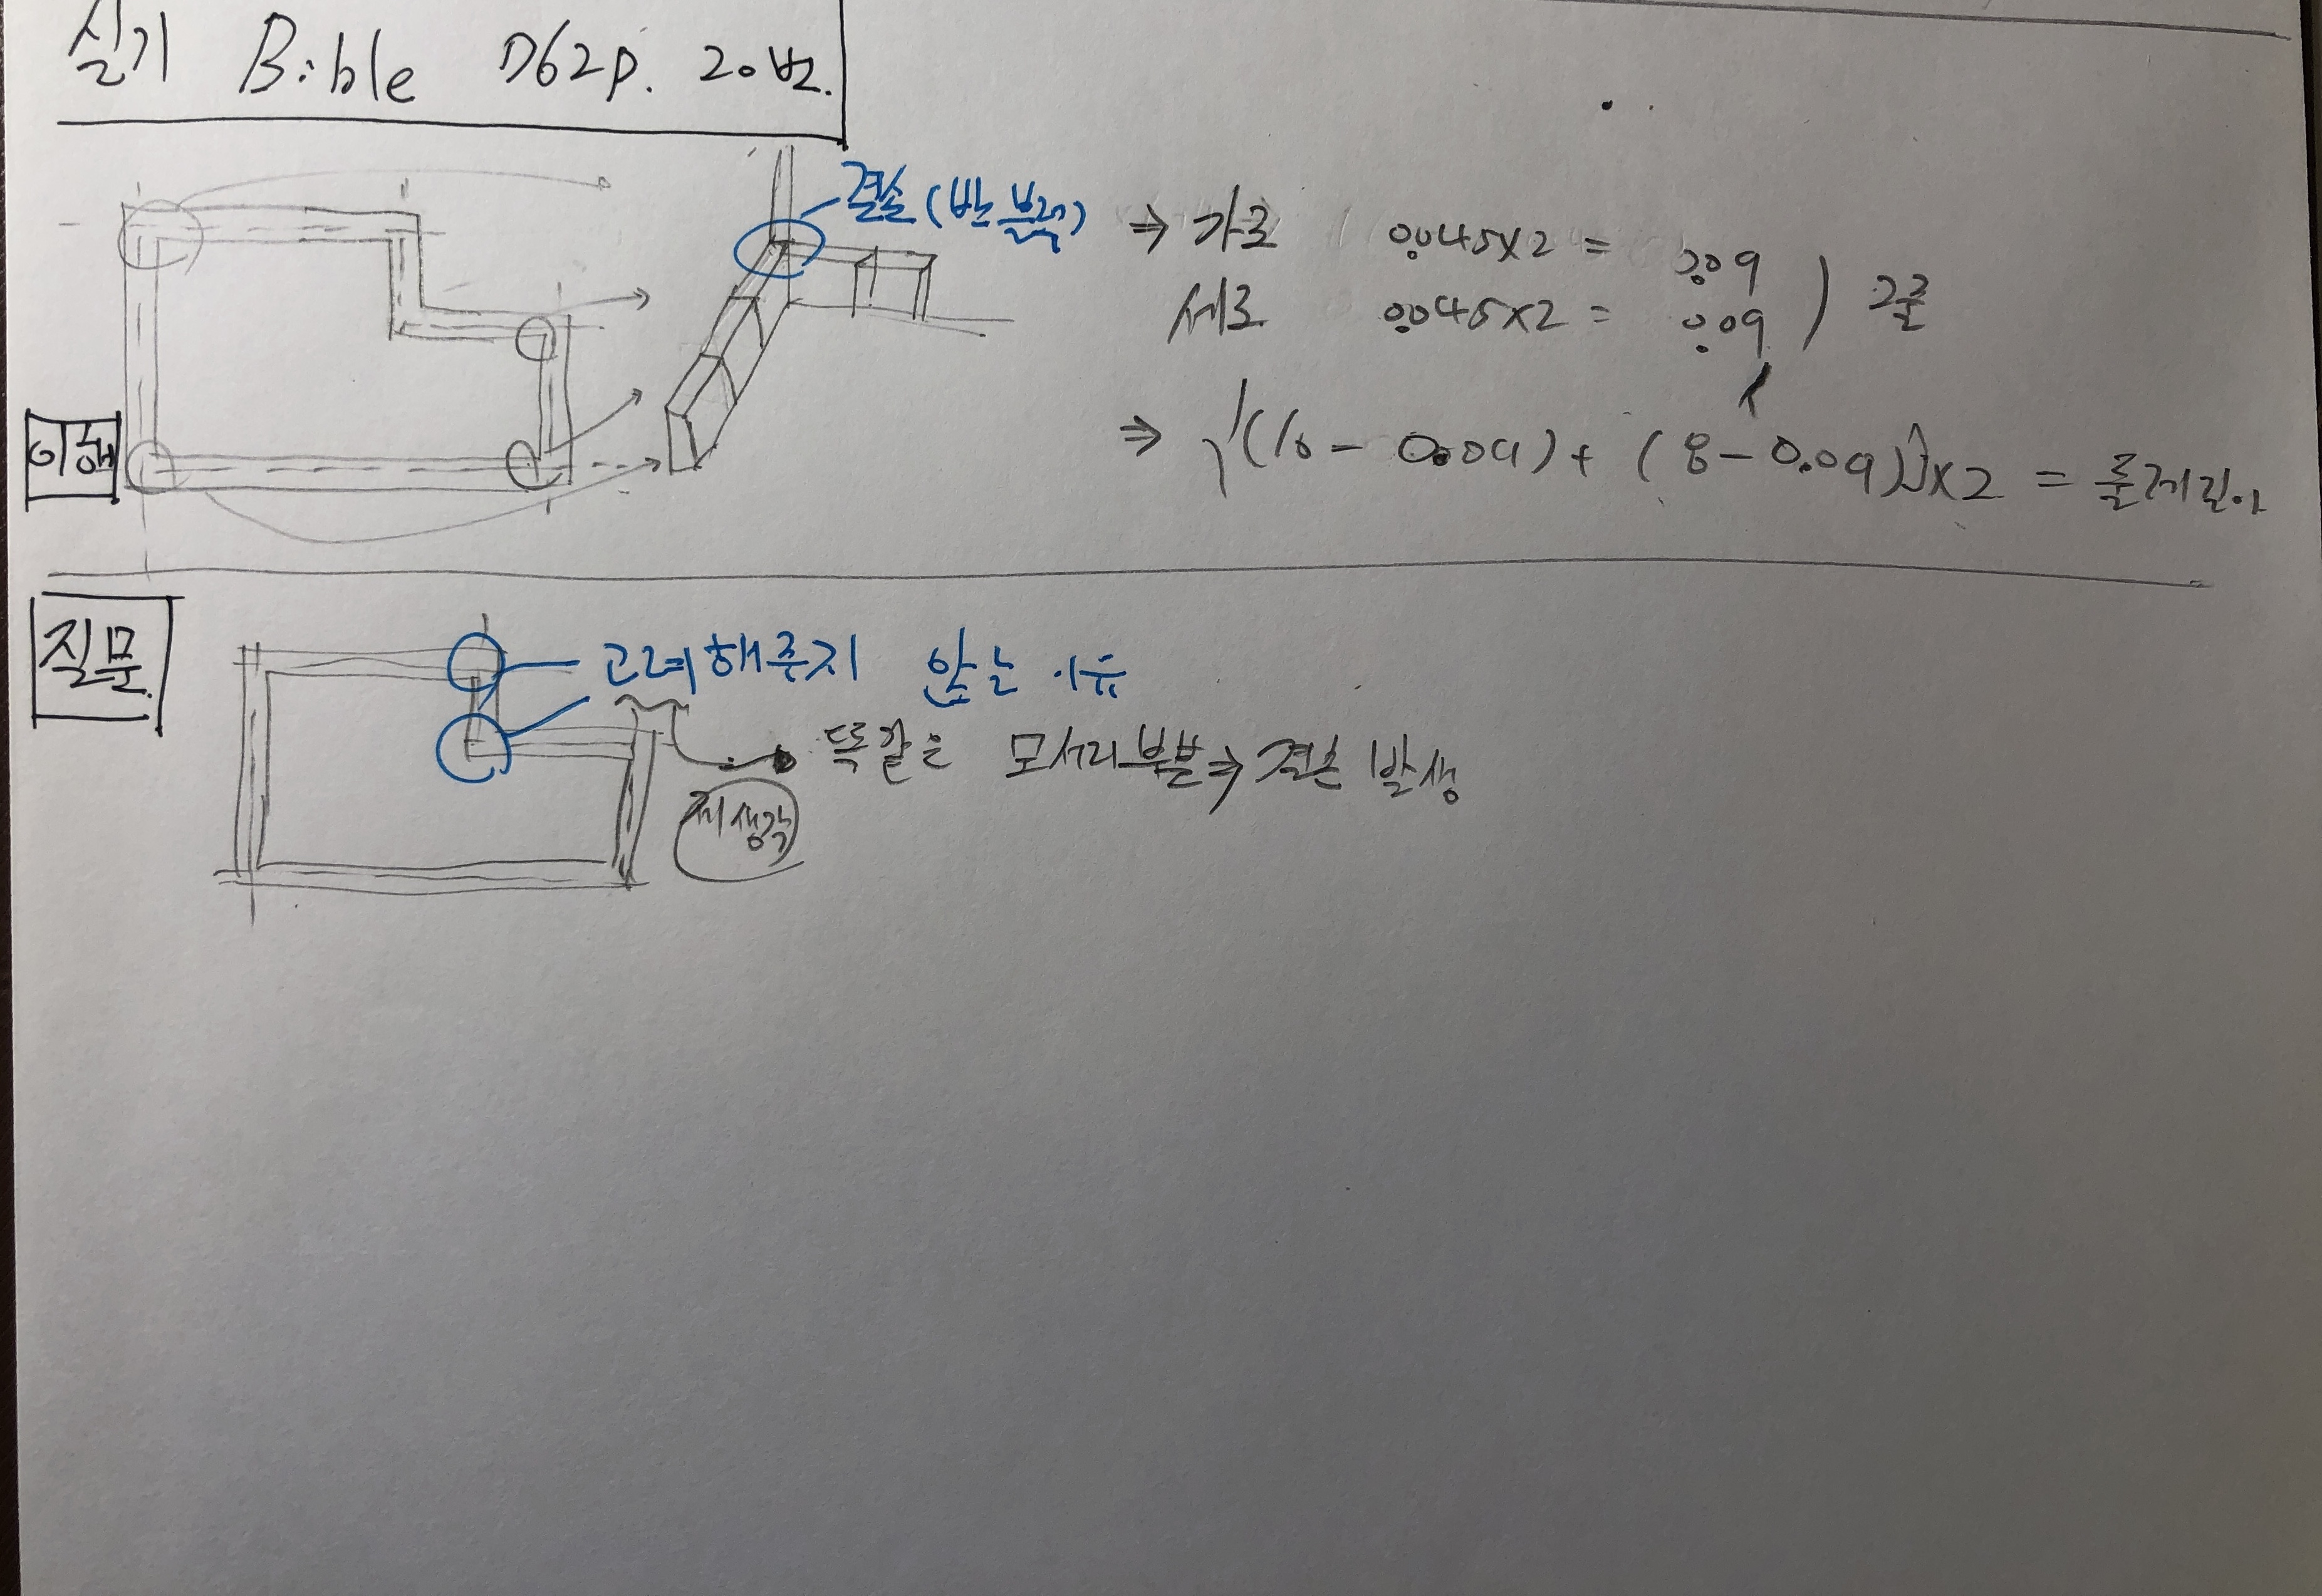 실기 Bible D62p. 20번.
결손 (반블럭)
⇒ 가로 0.045×2 = 0.09
세로 0.045×2 = 0.09
⇒ {(10 - 0.09) + (8 - 0.09)}×2 =
이해
질문.
고려해주지 않는 이유
똑같은 모서리부분 ⇒ 결손 발생
제 생각